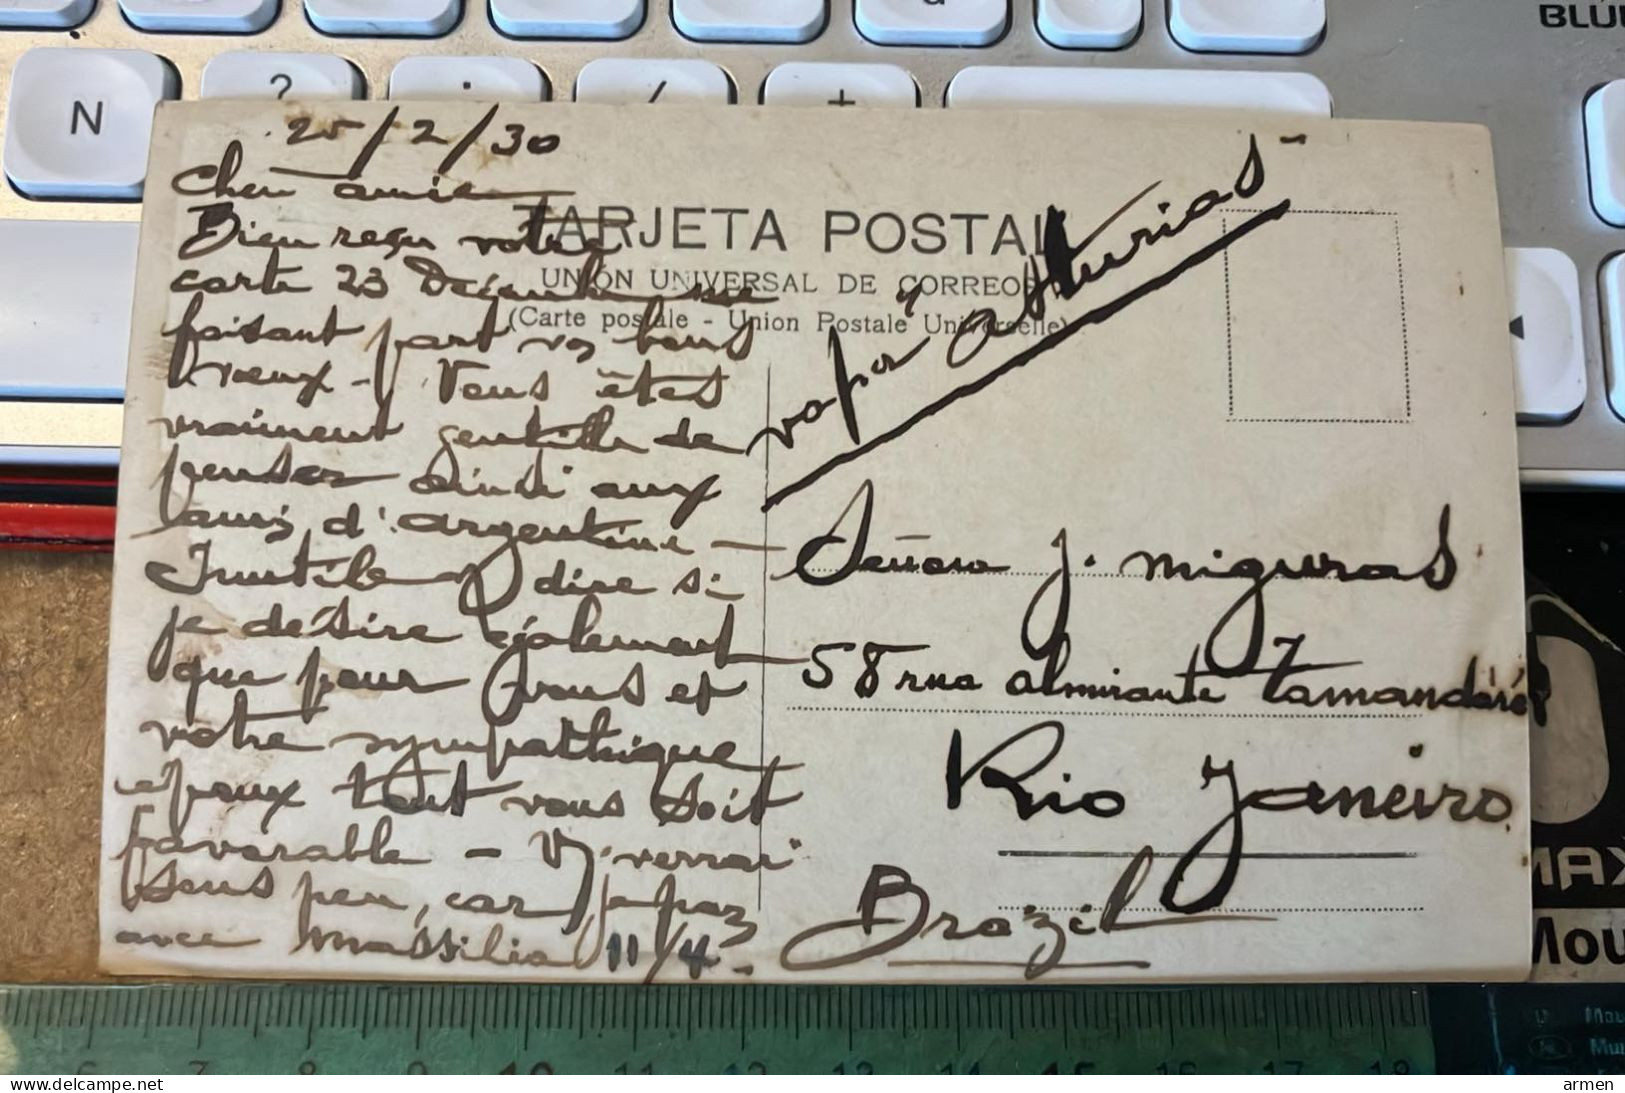 25/2/30
Cher amie
Bien reçu votre
carte 23 Décembre me
faisant part vos bons
vœux - Vous êtes
vraiment gentille de
penser ainsi aux
amis d'argentine -
Inutile dire si
je désire également
que pour vous et
votre sympathique
époux tout vous soit
favorable - V/ verrai
sous peu, car je paz
avec Massilia 11/4.
TARJETA POSTAL
UNIÓN UNIVERSAL DE CORREOS
(Carte postale - Union Postale Universelle)
vapor "asturias"
Señora J. Miguras
58 rua almirante Tamandaré
Rio Janeiro
Brazil
N
?
+
BLU
MAX
Mou
6 7 8 9 10 11 12 13 14 15 16 17 18
delcampe.net
armen